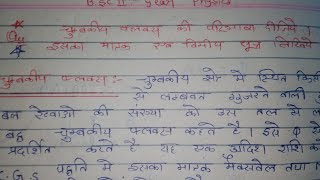 B.Sc II
चुम्बकीय फ्लक्स की परिभाषा दीजिये।
इसका मात्रक एवं विमीय सूत्र लिखिये
चुम्बकीय फ्लक्स :- चुम्बकीय क्षेत्र में स्थित किसी
से लम्बवत गुजरने वाली
बल रेखाओं की संख्या को उस तल से
चुम्बकीय फ्लक्स कहते हैं। इसे φ से
प्रदर्शित करते हैं यह एक अदिश राशि
C.G.S पद्धति में इसका मात्रक मैक्सवेल तथा